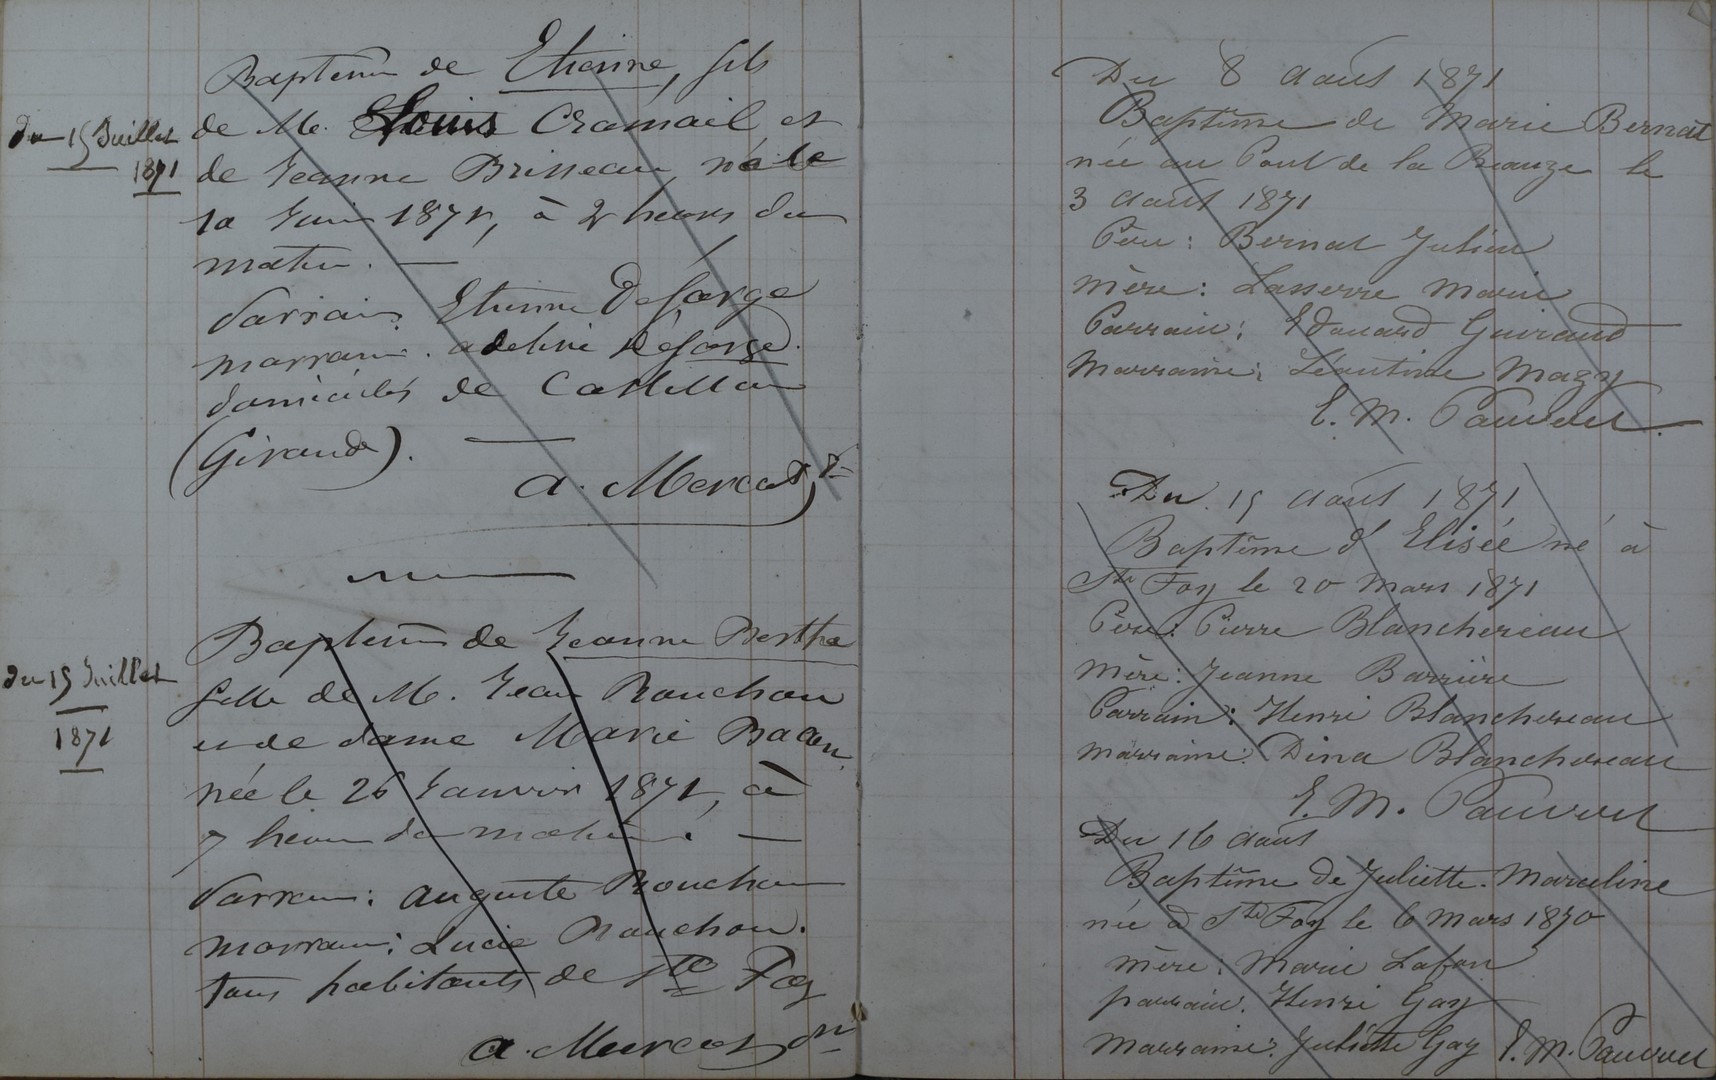 du 15 Juillet
1871
Baptême de Etienne, fils
de M. Louis Cramail et
de Jeanne Brisseau, né le
10 Juin 1871, à 2 heures du
matin. —
Parrain. Etienne Deforge
marraine. adeline Deforge.
domiciliés de Castillon
(Gironde). —
A. Mercat, pr
du 15 Juillet
1871
Baptême de Jeanne Bertha
fille de M. Jean Rouchon
et de dame Marie Bacon
née le 26 Janvier 1871, à
7 heures du matin. —
Parrain: Auguste Rouchon
marraine: Lucie Rouchon.
tous habitants de Ste Foy
A. Mercat
Du 8 Août 1871
Baptême de Marie Bernat
née au Pont de la Beauze le
3 Août 1871
Père: Bernat Julien
Mère: Lasserre Marie
Parrain: Edouard Guiraud
Marraine: Léontine Mazy
E. M. Pauvert
Du 15 Août 1871
Baptême d'Elisée né à
Ste Foy le 20 Mars 1871
Père: Pierre Blanchereau
Mère: Jeanne Barrière
Parrain: Henri Blanchereau
Marraine: Dina Blanchereau
E. M. Pauvert
Du 16 Août
Baptême de Juliette. Marceline
née à Ste Foy le 6 Mars 1870
Mère: Marie Lafon
parrain: Henri Gay
Marraine: Juliette Gay E. M. Pauvert